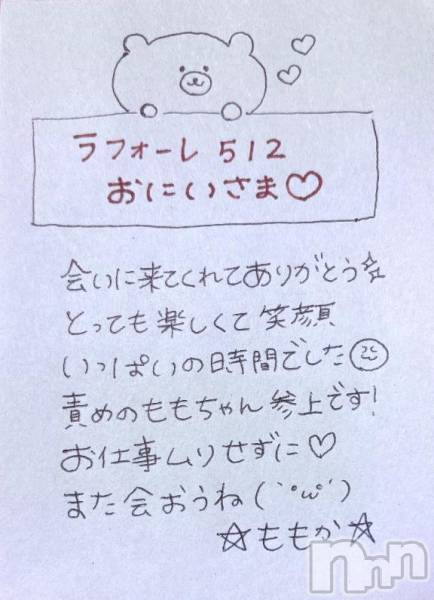 ラフォーレ 512
おにいさま♡
会いに来てくれてありがとう☆
とっても楽しくて笑顔
いっぱいの時間でした
責めのももちゃん参上です!
お仕事ムリせずに♡
また会おうね(`・ω・´)
☆ももか☆
nmn